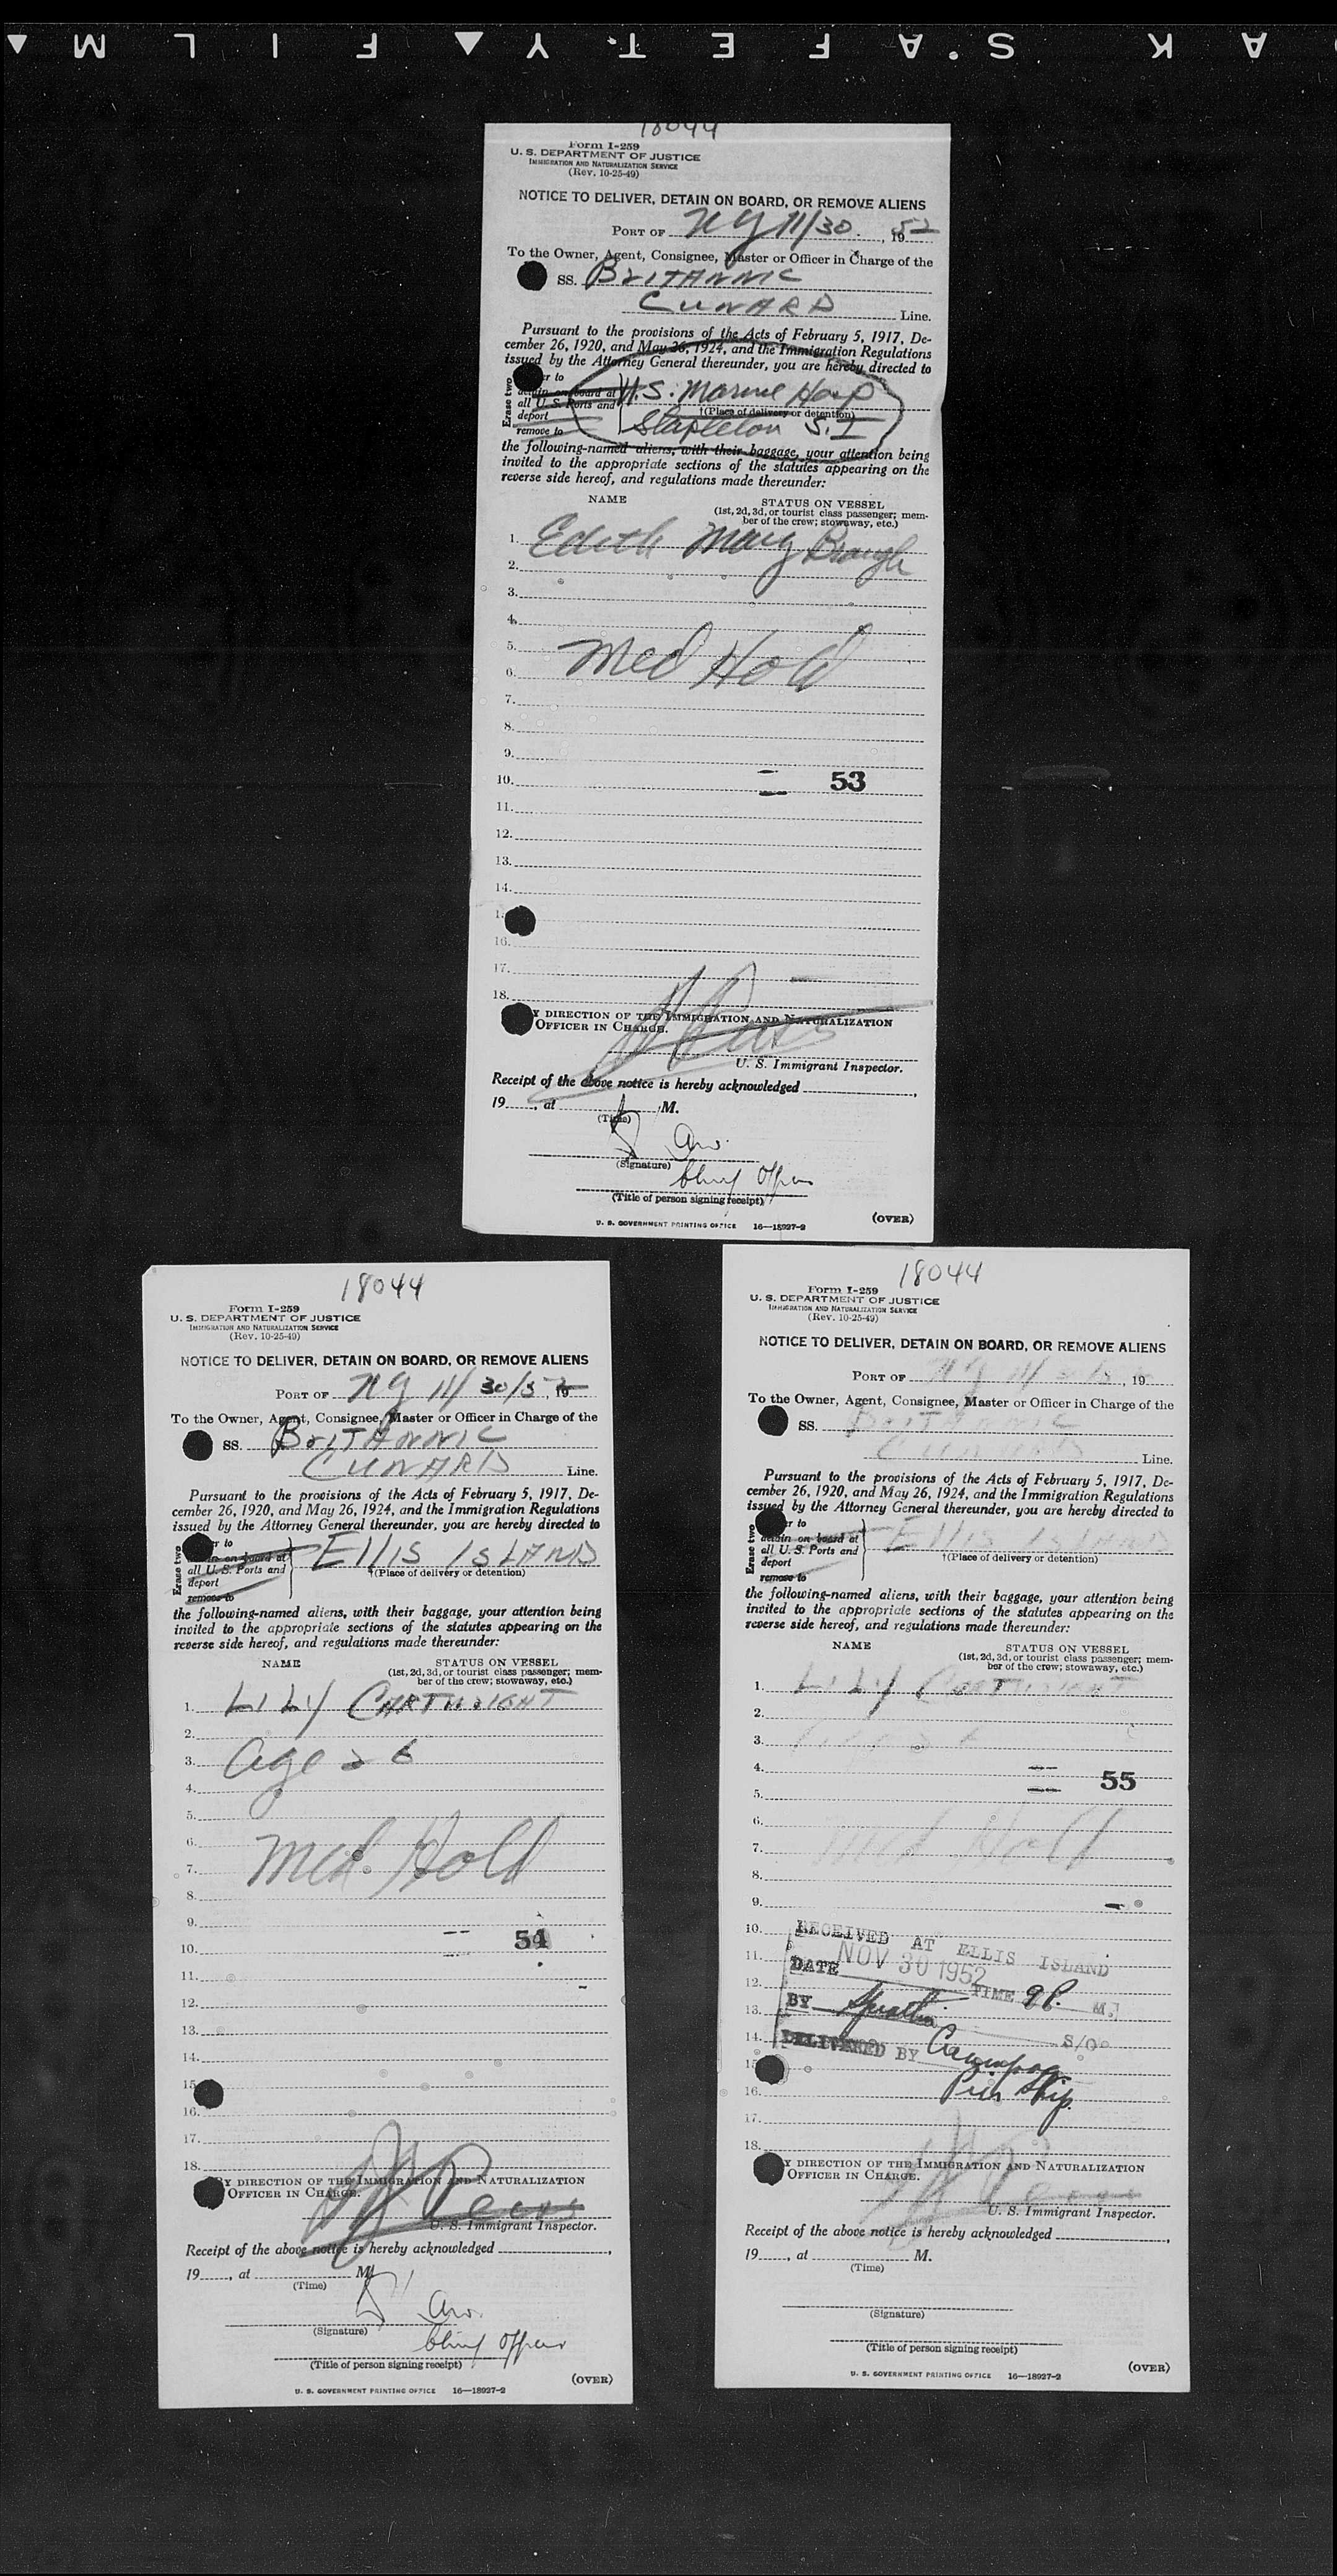 AK SAFETY FILM
18044
Form I-259
U. S. DEPARTMENT OF JUSTICE
IMMIGRATION AND NATURALIZATION SERVICE
(Rev. 10-25-49)
NOTICE TO DELIVER, DETAIN ON BOARD, OR REMOVE ALIENS
PORT OF NY 11/30, 1952
To the Owner, Agent, Consignee, Master or Officer in Charge of the
SS. BRITANNIC
CUNARD Line.
Pursuant to the provisions of the Acts of February 5, 1917, De-
cember 26, 1920, and May 26, 1924, and the Immigration Regulations
issued by the Attorney General thereunder, you are hereby directed to
Erase two
er to
detain on board at U.S. Marine Hosp
all U. S. Ports and †(Place of delivery or detention)
deport Stapleton S.I
remove to
the following-named aliens, with their baggage, your attention being
invited to the appropriate sections of the statutes appearing on the
reverse side hereof, and regulations made thereunder:
NAME STATUS ON VESSEL
(1st, 2d, 3d, or tourist class passenger; mem-
ber of the crew; stowaway, etc.)
1. Edith Mary Brough
2.
3.
4.
5. Med Hold
6.
7.
8.
9.
10. 53
11.
12.
13.
14.
1
16.
17.
18.
Y DIRECTION OF THE IMMIGRATION AND NATURALIZATION
OFFICER IN CHARGE.
U. S. Immigrant Inspector.
Receipt of the above notice is hereby acknowledged
19, at M.
(Time)
(Signature)
Chief Officer
(Title of person signing receipt)
U. S. GOVERNMENT PRINTING OFFICE 16—18927-2 (OVER)
18044
Form I-259
U. S. DEPARTMENT OF JUSTICE
IMMIGRATION AND NATURALIZATION SERVICE
(Rev. 10-25-49)
NOTICE TO DELIVER, DETAIN ON BOARD, OR REMOVE ALIENS
PORT OF NY 11/30/52, 19
To the Owner, Agent, Consignee, Master or Officer in Charge of the
SS. BRITANNIC
CUNARD Line.
Pursuant to the provisions of the Acts of February 5, 1917, De-
cember 26, 1920, and May 26, 1924, and the Immigration Regulations
issued by the Attorney General thereunder, you are hereby directed to
Erase two
er to
in on board at Ellis ISLAND
all U. S. Ports and †(Place of delivery or detention)
deport
remove to
the following-named aliens, with their baggage, your attention being
invited to the appropriate sections of the statutes appearing on the
reverse side hereof, and regulations made thereunder:
NAME STATUS ON VESSEL
(1st, 2d, 3d, or tourist class passenger; mem-
ber of the crew; stowaway, etc.)
1. LILY CARTWRIGHT
2.
3. Age 26
4.
5.
6. Med. Hold
7.
8.
9.
10. 54
11.
12.
13.
14.
15
16.
17.
18.
BY DIRECTION OF THE IMMIGRATION AND NATURALIZATION
OFFICER IN CHARGE.
U. S. Immigrant Inspector.
Receipt of the above notice is hereby acknowledged
19, at M.
(Time)
(Signature)
Chief Officer
(Title of person signing receipt)
(OVER)
U. S. GOVERNMENT PRINTING OFFICE 16—18927-2
18044
Form I-259
U. S. DEPARTMENT OF JUSTICE
IMMIGRATION AND NATURALIZATION SERVICE
(Rev. 10-25-49)
NOTICE TO DELIVER, DETAIN ON BOARD, OR REMOVE ALIENS
PORT OF NY 11/, 19
To the Owner, Agent, Consignee, Master or Officer in Charge of the
SS. BRITANNIC
CUNARD Line.
Pursuant to the provisions of the Acts of February 5, 1917, De-
cember 26, 1920, and May 26, 1924, and the Immigration Regulations
issued by the Attorney General thereunder, you are hereby directed to
Erase two
er to
detain on board at Ellis ISLAND
all U. S. Ports and †(Place of delivery or detention)
deport
remove to
the following-named aliens, with their baggage, your attention being
invited to the appropriate sections of the statutes appearing on the
reverse side hereof, and regulations made thereunder:
NAME STATUS ON VESSEL
(1st, 2d, 3d, or tourist class passenger; mem-
ber of the crew; stowaway, etc.)
1. LILY CARTWRIGHT
2.
3. Age 26
4. 55
5.
6. Med Hold
7.
8.
9.
10. RECEIVED AT ELLIS ISLAND
11. DATE NOV 30 1952 TIME 9 P. M.
12.
13. BY S/O
14. DELIVERED BY
15
16.
17.
18.
Y DIRECTION OF THE IMMIGRATION AND NATURALIZATION
OFFICER IN CHARGE.
U. S. Immigrant Inspector.
Receipt of the above notice is hereby acknowledged
19, at M.
(Time)
(Signature)
(Title of person signing receipt)
(OVER)
U. S. GOVERNMENT PRINTING OFFICE 16—18927-2